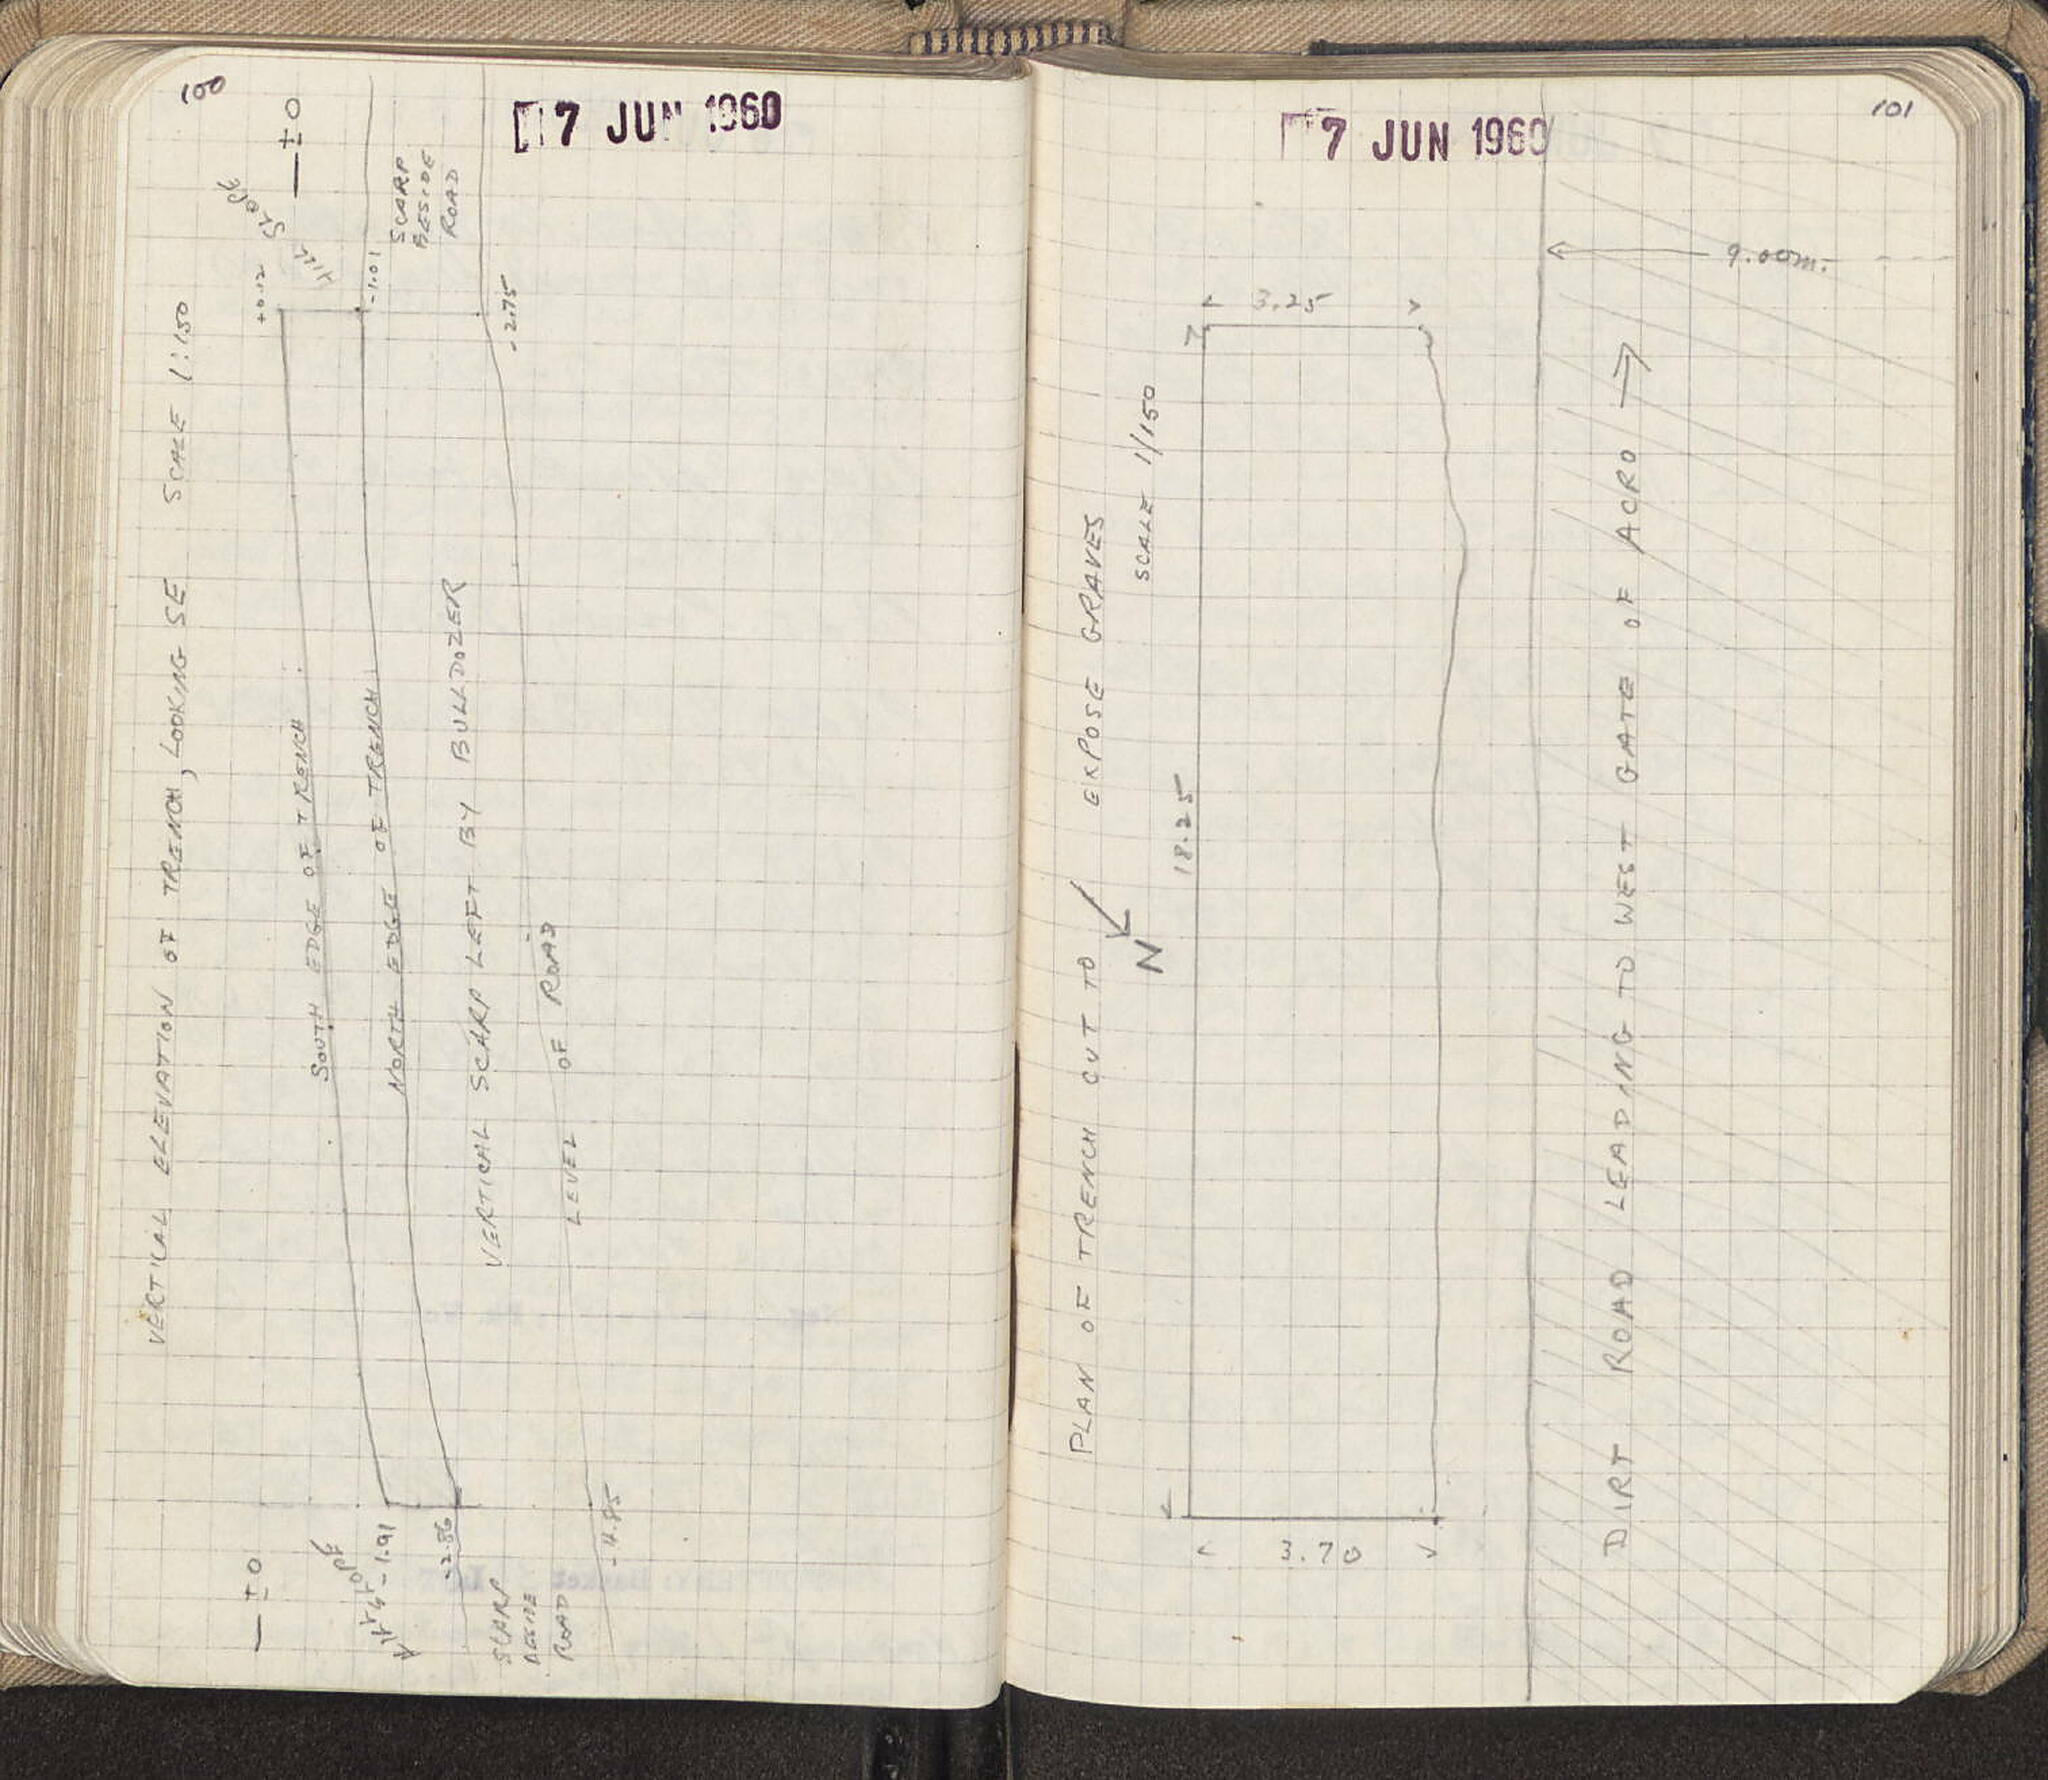 100
7 JUN 1960
VERTICAL ELEVATION OF TRENCH, LOOKING SE SCALE 1:150
±0
±0
HILL SLOPE
+0.12
-1.01
SCARP
BESIDE
ROAD
-2.75
SOUTH EDGE OF TRENCH
NORTH EDGE OF TRENCH
VERTICAL SCARP LEFT BY BULLDOZER
LEVEL OF ROAD
HILL SLOPE
-1.91
-2.86
SCARP
BESIDE
ROAD
-4.85
101
7 JUN 1960
PLAN OF TRENCH CUT TO EXPOSE GRAVES
SCALE 1/150
N
3.25
18.25
3.70
9.00m.
DIRT ROAD LEADING TO WEST GATE OF ACRO